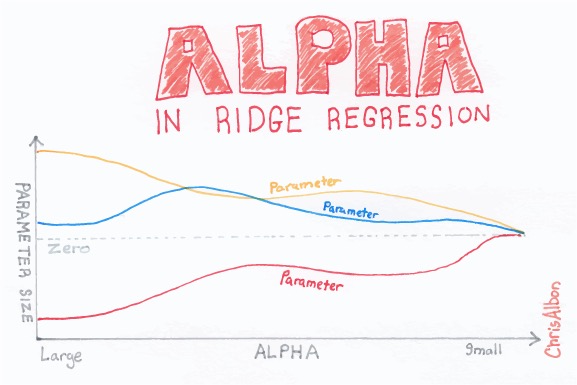 ALPHA
IN RIDGE REGRESSION
PARAMETER SIZE
Parameter
Parameter
Zero
Parameter
Large
ALPHA
Small
ChrisAlbon